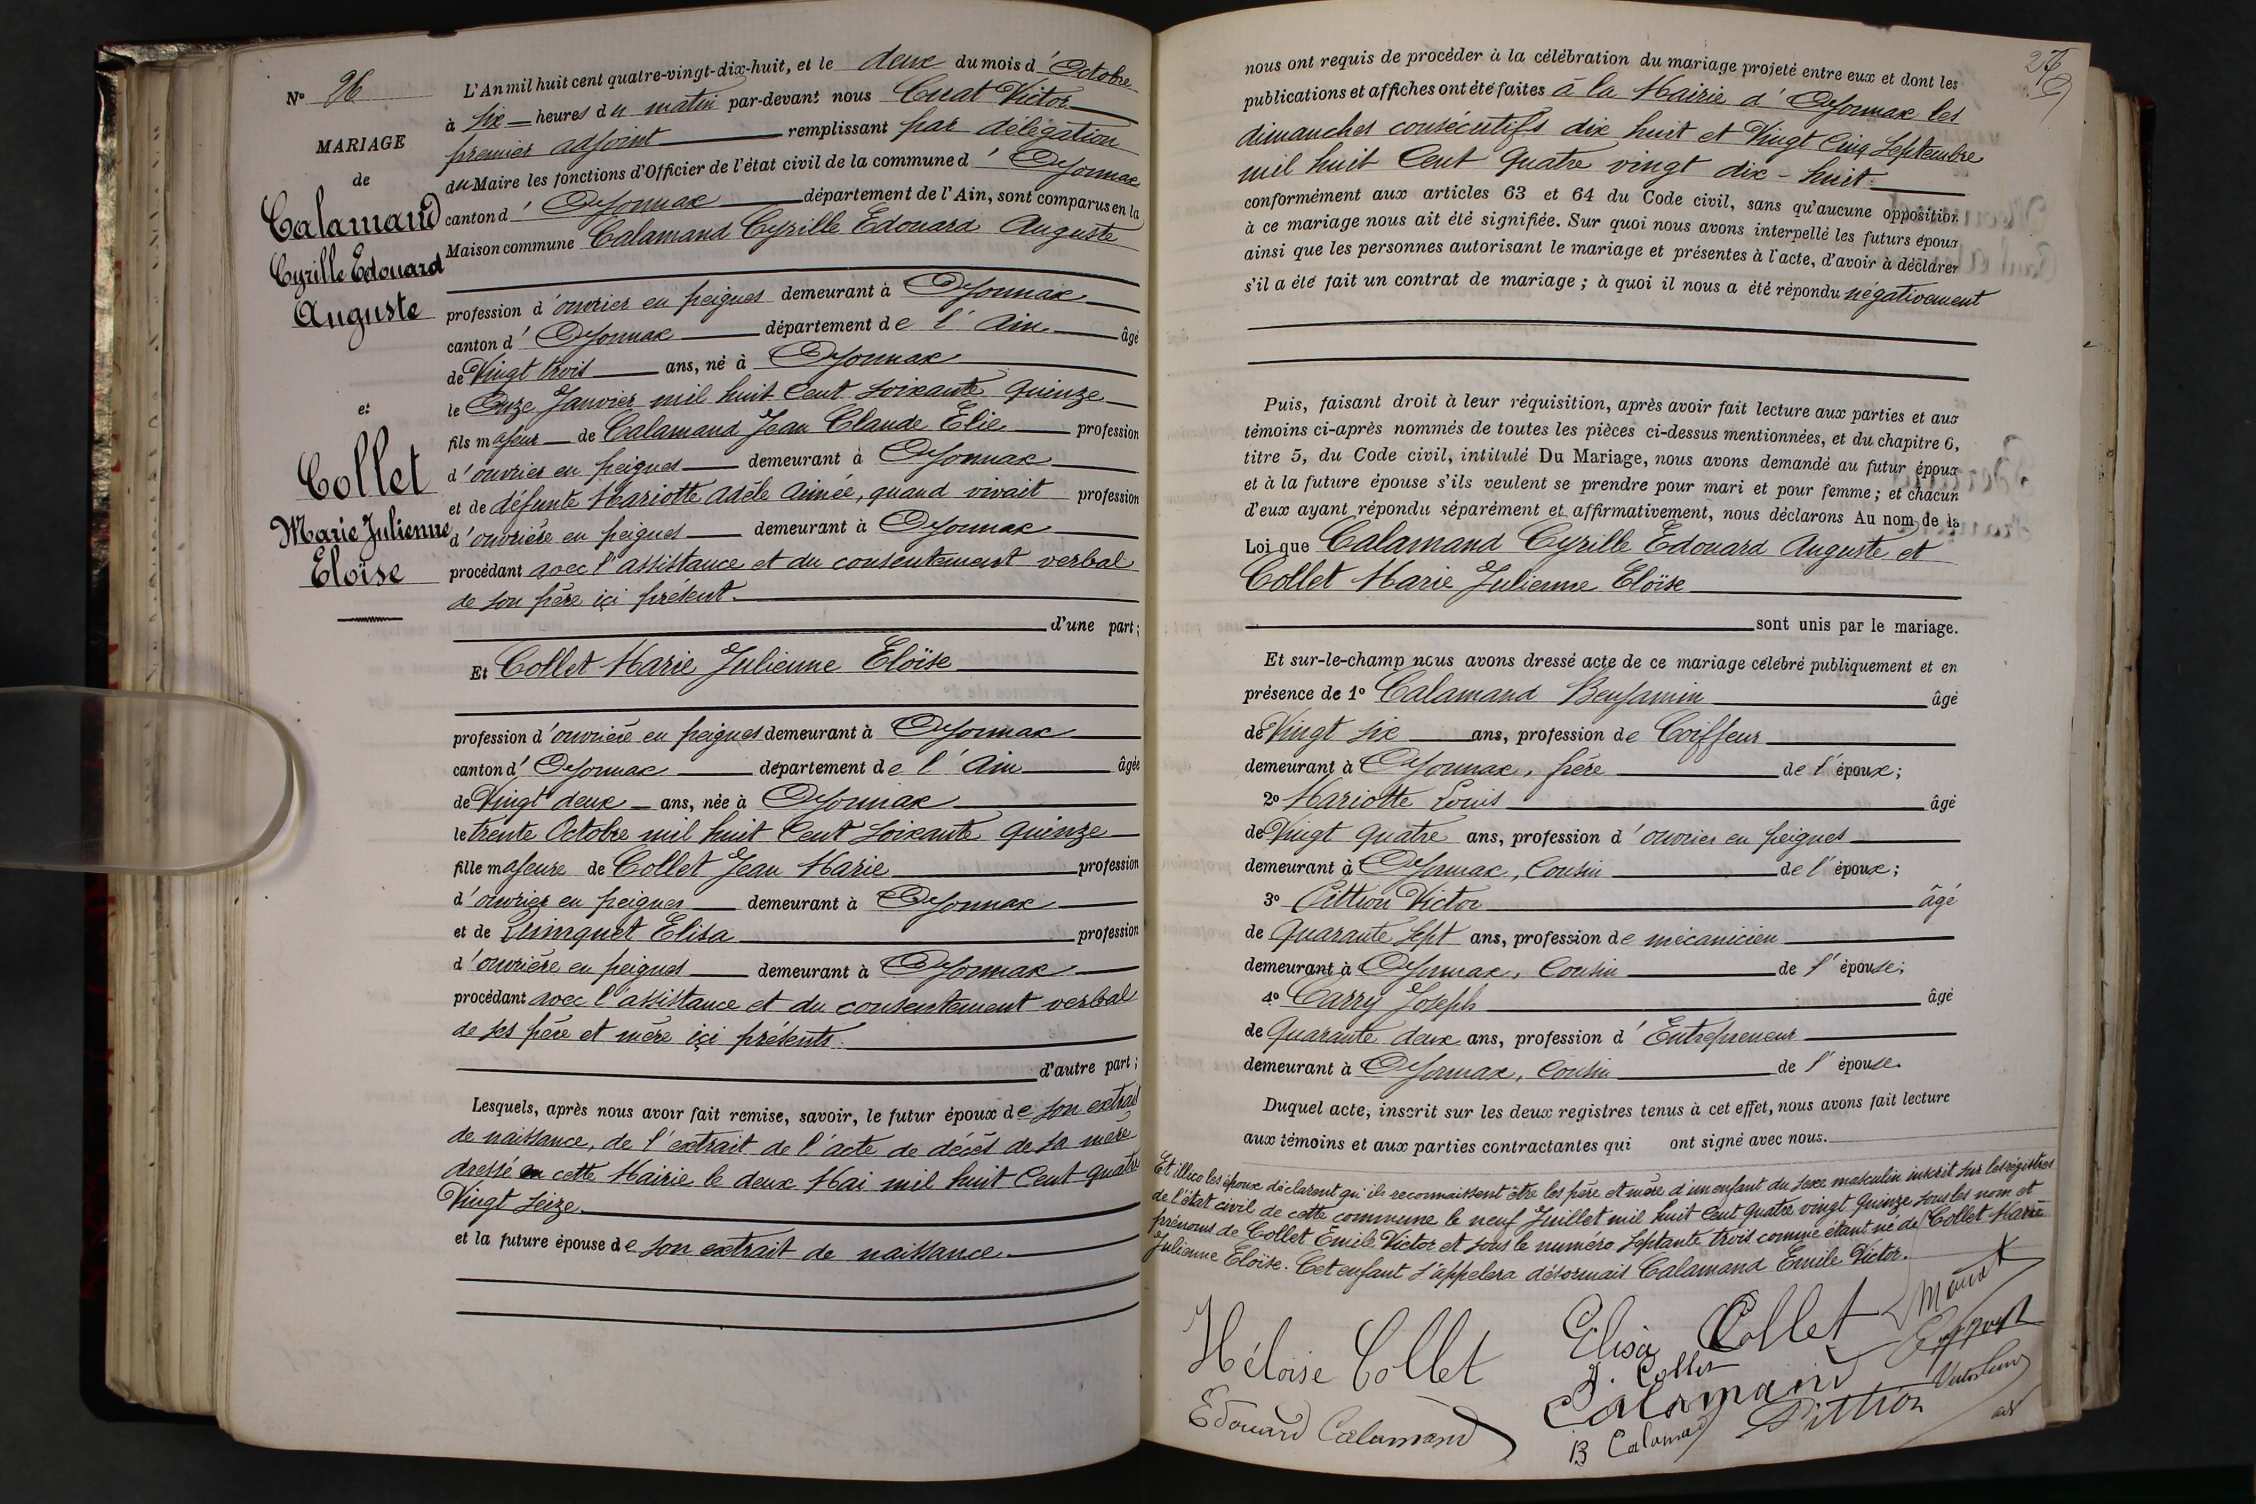 N° 96
MARIAGE
de
Calamand
Cyrille Edouard
Auguste
et
Collet
Marie Julienne
Eloïse
L'An mil huit cent quatre-vingt-dix-huit, et le deux du mois d'Octobre
à six heures du matin par-devant nous Cuat Victor
premier adjoint remplissant par délégation
du Maire les fonctions d'Officier de l'état civil de la commune d'Oyonnax
canton d'Oyonnax département de l'Ain, sont comparus en la
Maison commune Calamand Cyrille Edouard Auguste
profession d'ouvrier en peignes demeurant à Oyonnax
canton d'Oyonnax département de l'Ain âgé
de Vingt trois ans, né à Oyonnax
le Onze Janvier mil huit Cent soixante Quinze
fils majeur de Calamand Jean Claude Elie profession
d'ouvrier en peignes demeurant à Oyonnax
et de défunte Mariotte Adèle Aimée, quand vivait profession
d'ouvrière en peignes demeurant à Oyonnax
procédant avec l'assistance et du consentement verbal
de son père içi présent.
d'une part;
Et Collet Marie Julienne Eloïse
profession d'ouvrière en peignes demeurant à Oyonnax
canton d'Oyonnax département de l'Ain âgée
de Vingt deux ans, née à Oyonnax
le trente Octobre mil huit Cent soixante Quinze
fille majeure de Collet Jean Marie profession
d'ouvrier en peignes demeurant à Oyonnax
et de Quinquet Elisa profession
d'ouvrière en peignes demeurant à Oyonnax
procédant avec l'assistance et du consentement verbal
de ses père et mère içi présents.
d'autre part;
Lesquels, après nous avoir fait remise, savoir, le futur époux de son extrait
de naissance, de l'extrait de l'acte de décès de sa mère
dressé en cette Mairie le deux Mai mil huit Cent quatre
Vingt seize.
et la future épouse de son extrait de naissance.
nous ont requis de procéder à la célébration du mariage projeté entre eux et dont les
publications et affiches ont été faites à la Mairie d'Oyonnax les
dimanches consécutifs dix huit et Vingt Cinq Septembre
mil huit Cent Quatre vingt dix-huit.
conformément aux articles 63 et 64 du Code civil, sans qu'aucune opposition
à ce mariage nous ait été signifiée. Sur quoi nous avons interpellé les futurs époux
ainsi que les personnes autorisant le mariage et présentes à l'acte, d'avoir à déclarer
s'il a été fait un contrat de mariage; à quoi il nous a été répondu négativement
Puis, faisant droit à leur réquisition, après avoir fait lecture aux parties et aux
témoins ci-après nommés de toutes les pièces ci-dessus mentionnées, et du chapitre 6,
titre 5, du Code civil, intitulé Du Mariage, nous avons demandé au futur époux
et à la future épouse s'ils veulent se prendre pour mari et pour femme; et chacun
d'eux ayant répondu séparément et affirmativement, nous déclarons Au nom de la
Loi que Calamand Cyrille Edouard Auguste et
Collet Marie Julienne Eloïse
sont unis par le mariage.
Et sur-le-champ nous avons dressé acte de ce mariage célébré publiquement et en
présence de 1° Calamand Benjamin âgé
de Vingt six ans, profession de Coiffeur
demeurant à Oyonnax, frère de l'époux;
2° Mariotte Louis âgé
de Vingt quatre ans, profession d'ouvrier en peignes
demeurant à Oyonnax, Cousin de l'époux;
3° Pittion Victor âgé
de Quarante sept ans, profession de mécanicien
demeurant à Oyonnax, Cousin de l'épouse;
4° Carry Joseph âgé
de Quarante deux ans, profession d'Entrepreneur
demeurant à Oyonnax, Cousin de l'épouse.
Duquel acte, inscrit sur les deux registres tenus à cet effet, nous avons fait lecture
aux témoins et aux parties contractantes qui ont signé avec nous.
Et illico les époux déclarent qu'ils reconnaissent être les père et mère d'un enfant du sexe masculin inscrit sur les régistres
de l'état civil de cette commune le neuf Juillet mil huit Cent Quatre vingt Quinze sous les nom et
prénoms de Collet Emile Victor et sous le numéro septante trois comme étant né de Collet Marie
Julienne Eloïse. Cet enfant s'appelera désormais Calamand Emile Victor.
Héloïse Collet
Elisa Collet
J. Collet
Calamand
Edouard Calamand
B Calamand
Pittion